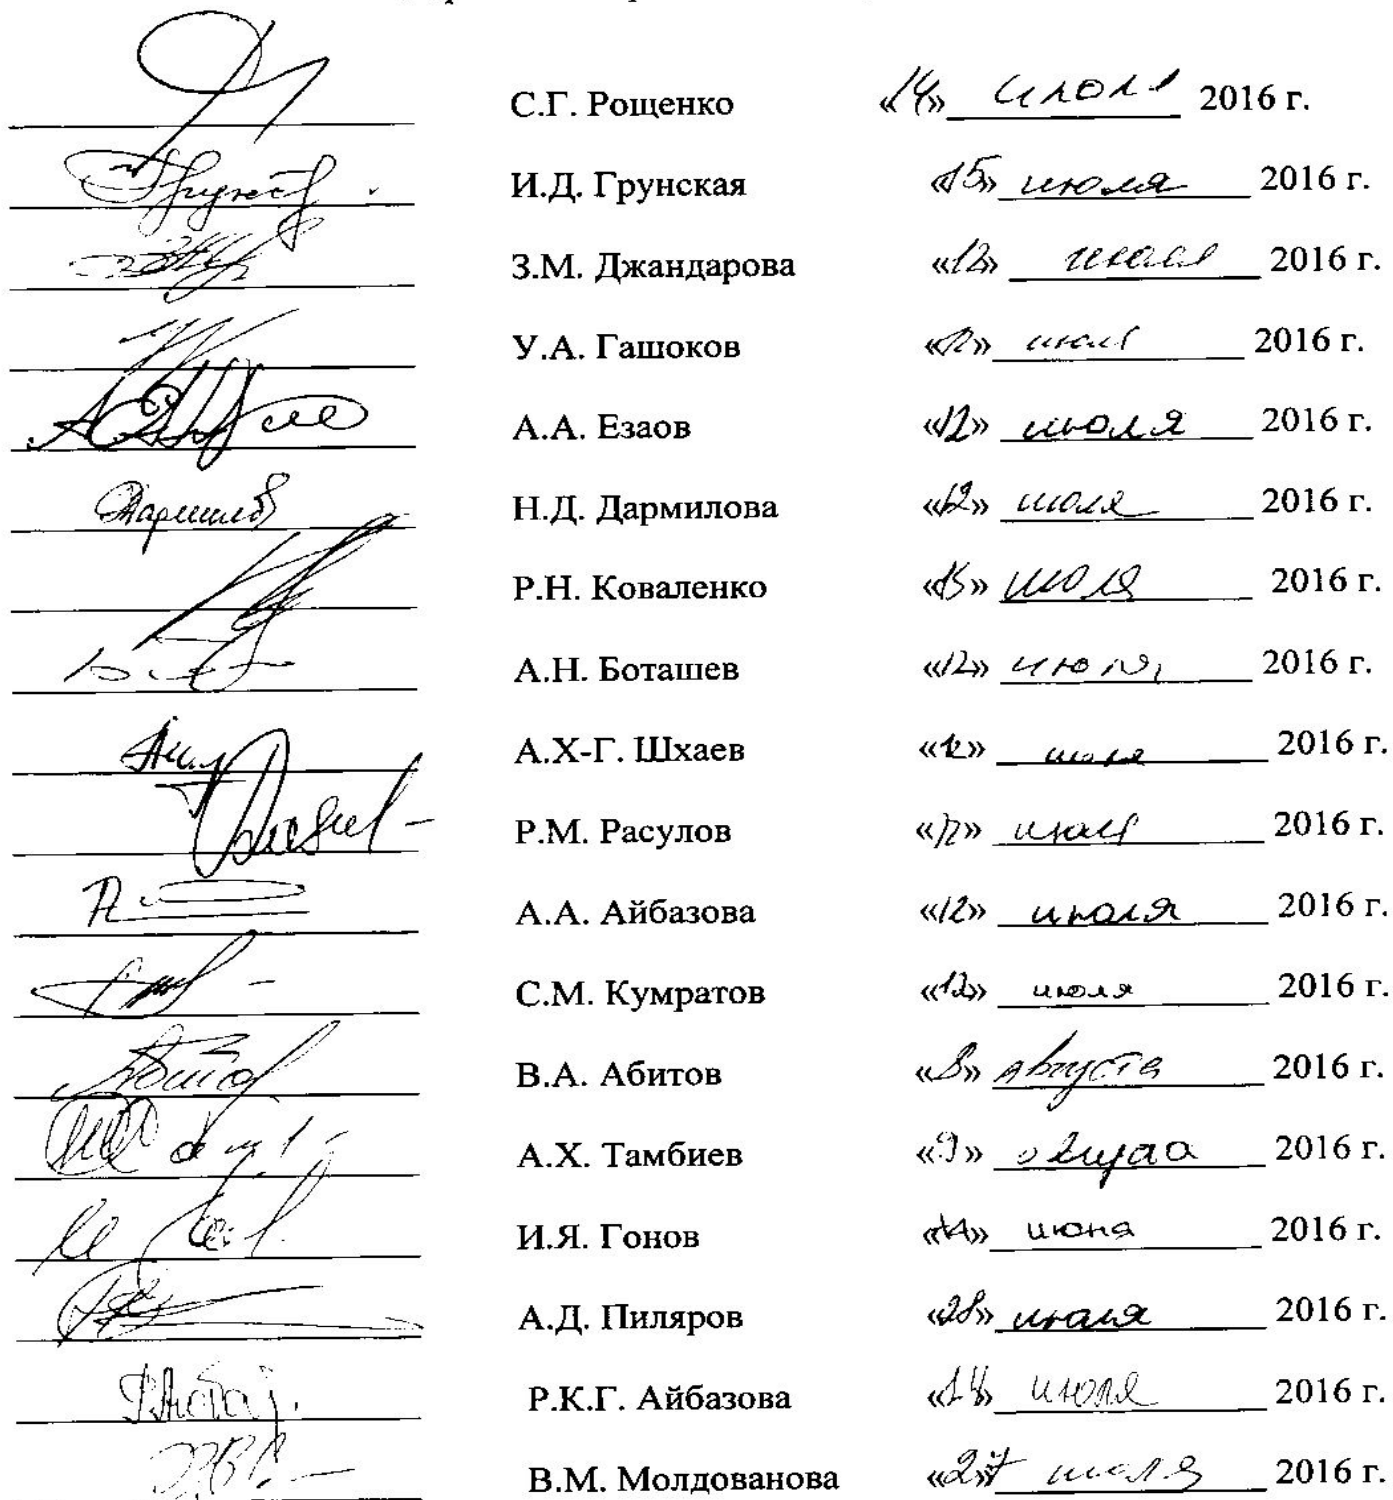 С.Г. Рощенко «14» июля 2016 г.
И.Д. Грунская «15» июля 2016 г.
З.М. Джандарова «12» июля 2016 г.
У.А. Гашоков «12» июля 2016 г.
А.А. Езаов «12» июля 2016 г.
Н.Д. Дармилова «12» июля 2016 г.
Р.Н. Коваленко «15» июля 2016 г.
А.Н. Боташев «12» июля 2016 г.
А.Х-Г. Шхаев «12» июля 2016 г.
Р.М. Расулов «12» июля 2016 г.
А.А. Айбазова «12» июля 2016 г.
С.М. Кумратов «12» июля 2016 г.
В.А. Абитов «8» августа 2016 г.
А.Х. Тамбиев «9» 2016 г.
И.Я. Гонов 2016 г.
А.Д. Пиляров «28» июля 2016 г.
Р.К.Г. Айбазова июля 2016 г.
В.М. Молдованова «27» июля 2016 г.